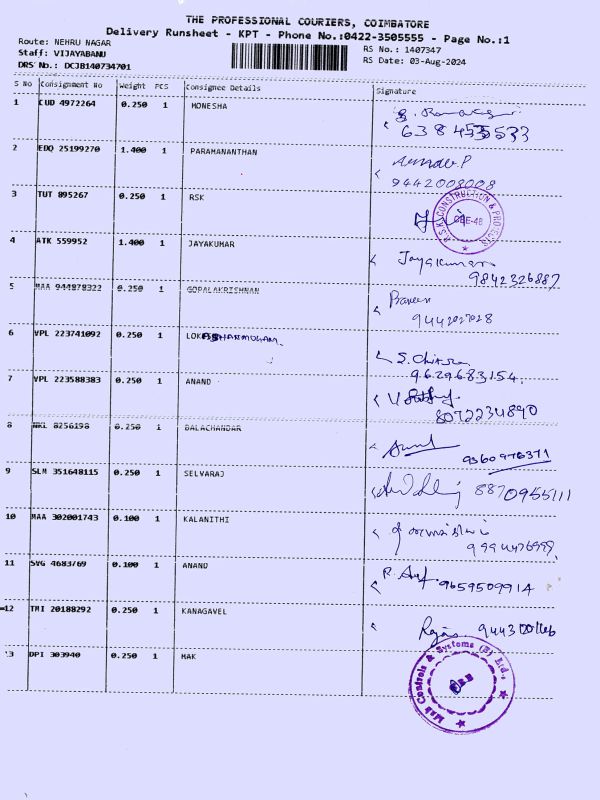 THE PROFESSIONAL COURIERS, COIMBATORE
Delivery Runsheet - KPT - Phone No.:0422-3505555 - Page No.:1
Route: NEHRU NAGAR RS No.: 1407347
Staff: VIJAYABANU RS Date: 03-Aug-2024
DRS No.: DCJB140734701
S No Consignment No Weight PCS Consignee Details Signature
1 CUD 4972264 0.250 1 MONESHA
638 455533
2 EDQ 25199270 1.400 1 PARAMANANTHAN
9442008008
3 TUT 895267 0.250 1 RSK
R.S.K. CONSTRUCTION & PROJECTS CBE-48
4 ATK 559952 1.400 1 JAYAKUMAR Jayakumar
9842326887
5 MAA 944878322 0.250 1 GOPALAKRISHNAN Praveen
9442027028
6 VPL 223741092 0.250 1 S. Chitra
9629683154.
7 VPL 223588383 0.250 1 ANAND
8072234890
8 8256198 0.250 1 BALACHANDAR
9360976371
9 SLM 351648115 0.250 1 SELVARAJ
8870955111
10 MAA 302001743 0.100 1 KALANITHI
11 SVG 4683769 0.100 1 ANAND
9659509914
12 TMI 20188292 0.250 1 KANAGAVEL
13 DPI 303940 0.250 1 MAK
Mak Controls & Systems (P) Ltd.,